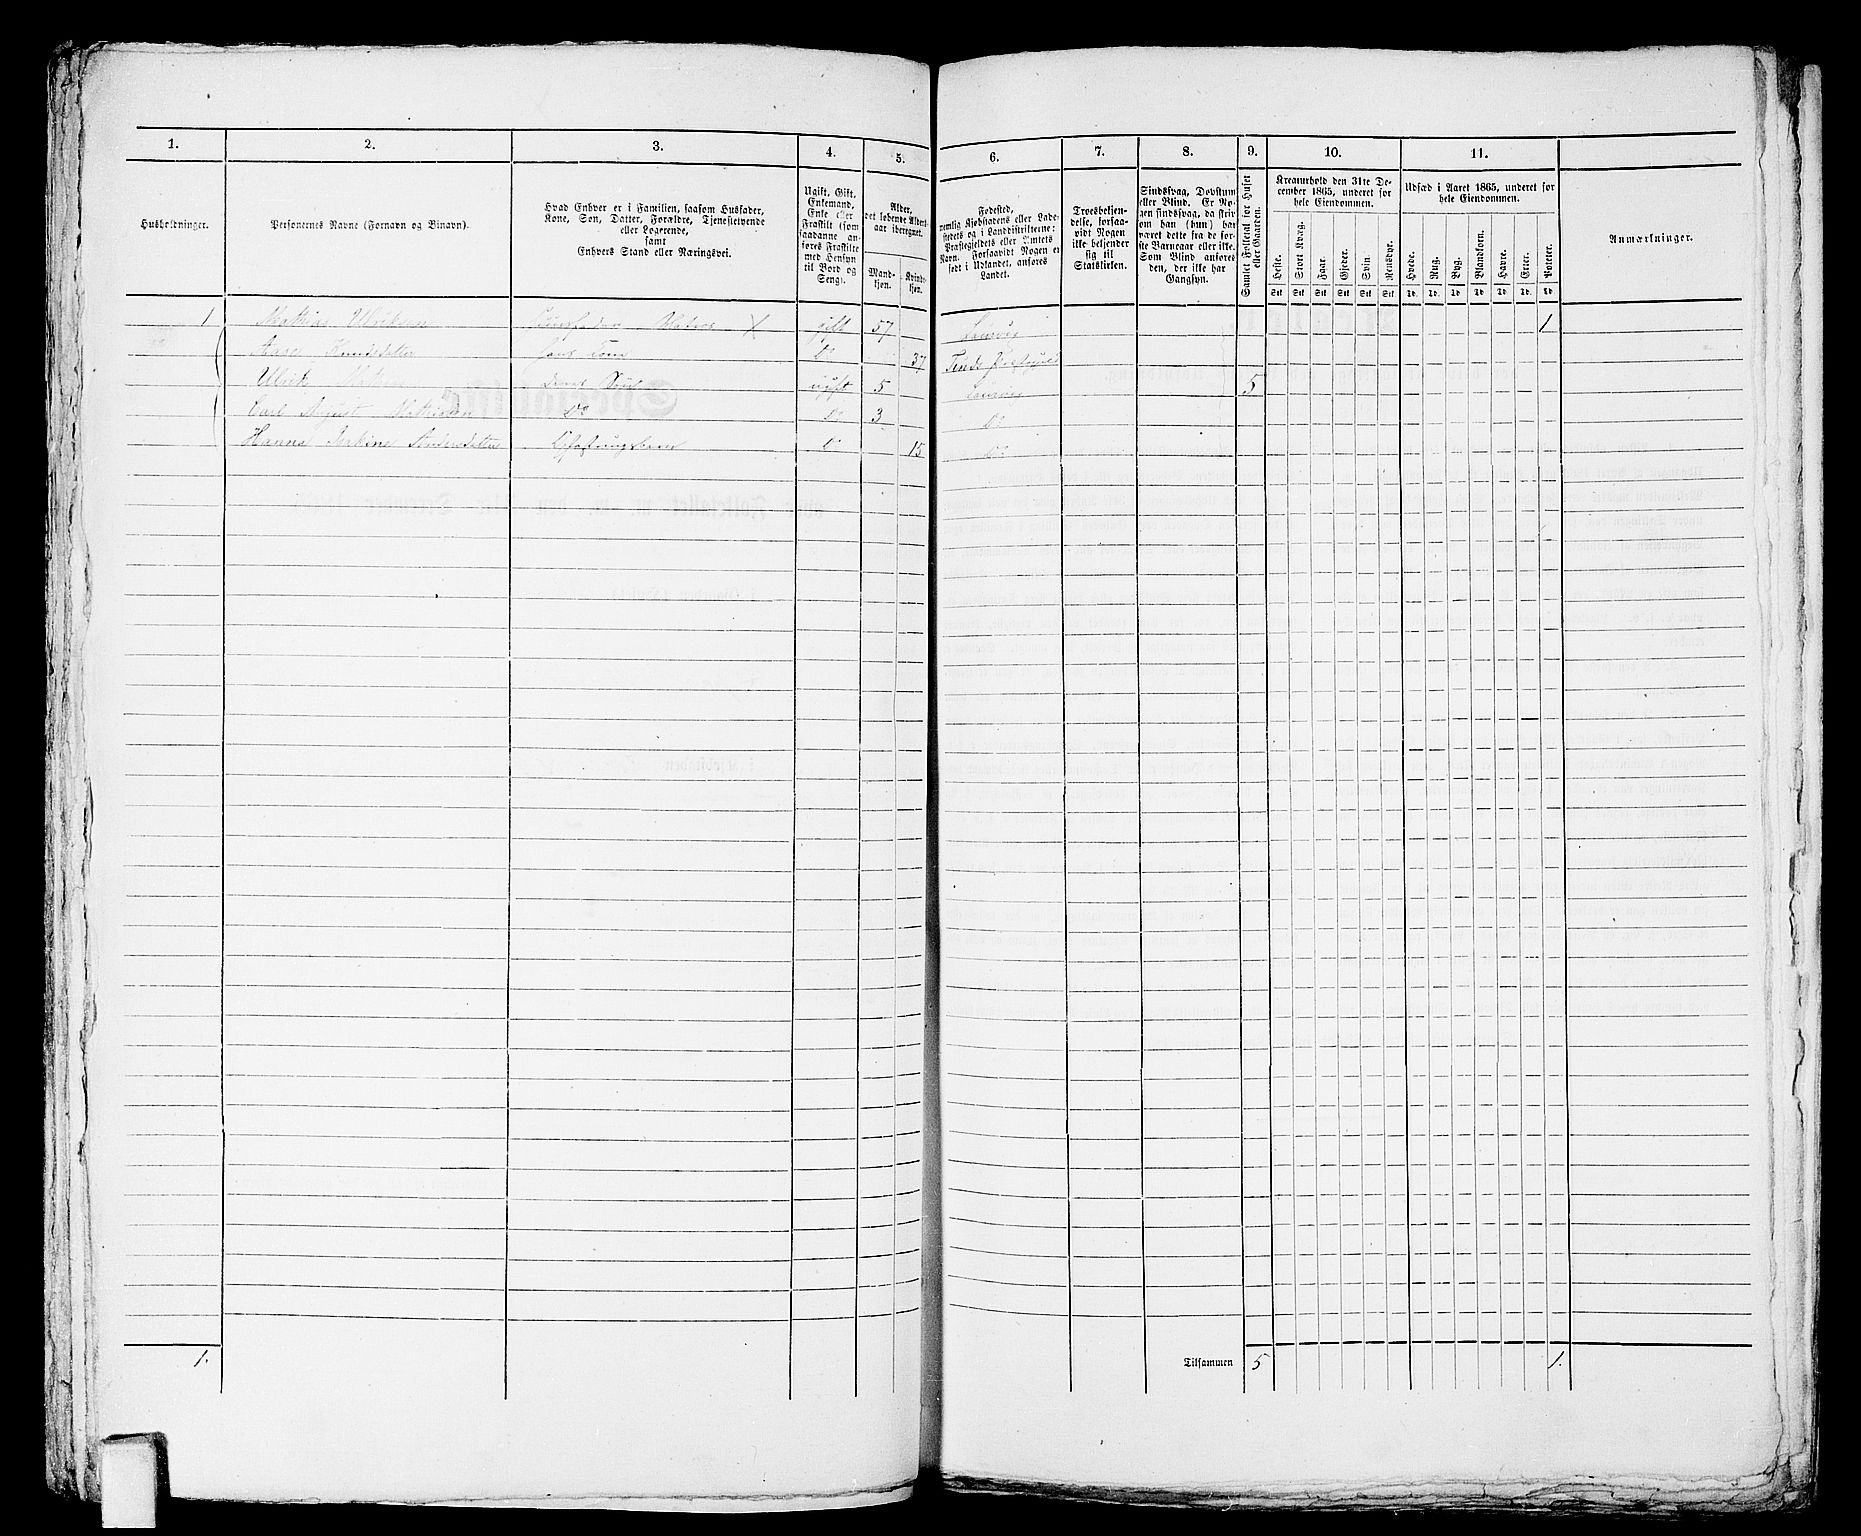 1. 2. 3. 4. 5. 6. 7. 8. 9. 10. 11.
Husholdninger.
Personernes Navne (Fornavn og Binavn).
Hvad Enhver er i Familien, saasom Husfader,
Kone, Søn, Datter, Forældre, Tjenestetyende
eller Logerende,
samt
Enhvers Stand eller Næringsvei.
Ugift, Gift,
Enkemand,
Enke eller
Fraskilt (som
saadanne an-
føres Fraskilte
med Hensyn
til Bord og
Seng).
Alder,
det løbende Alders-
aar iberegnet.
Mand-
kjøn.
Kvinde-
kjøn.
Fødested,
nemlig Kjøbstadens eller Lade-
stedets og i Landdistrikterne:
Præstegjeldets eller Amtets
Navn. Forsaavidt Nogen er
født i Udlandet, anføres
Landet.
Troesbekjen-
delse, forsaa-
vidt Nogen
ikke bekjender
sig til
Statskirken.
Sindssvag, Døvstum
eller Blind. Er No-
gen sindssvag, da skriv
om han (hun) har
været dette fra de før-
ste Barneaar eller ikke.
Som Blind anføres
den, der ikke har
Gangsyn.
Samlet Folketal for Huset
eller Gaarden.
Kreaturhold den 31te De-
cember 1865, underet for
hele Eiendommen.
Heste. Stort Kvæg. Faar. Gjeder. Svin. Rensdyr.
Stk Stk Stk Stk Stk Stk
Udsæd i Aaret 1865, underet for
hele Eiendommen.
Hvede. Rug. Byg. Blandkorn. Havre. Erter. Poteter.
Td. Td. Td. Td. Td. Td. Td.
Anmærkninger.
1 Mathias Ulriksen Huusfader Matros X gift 57 Laurvig 1
Aase Knudsdatter hans Kone Do 37 Tinds Præstegjeld
Ulrik deres Søn ugift 5 Laurvig 5
Carl August Mathisen Do Do 3 Do
Hanna Andersdatter Do 15 Do
1. Tilsammen 5 1.